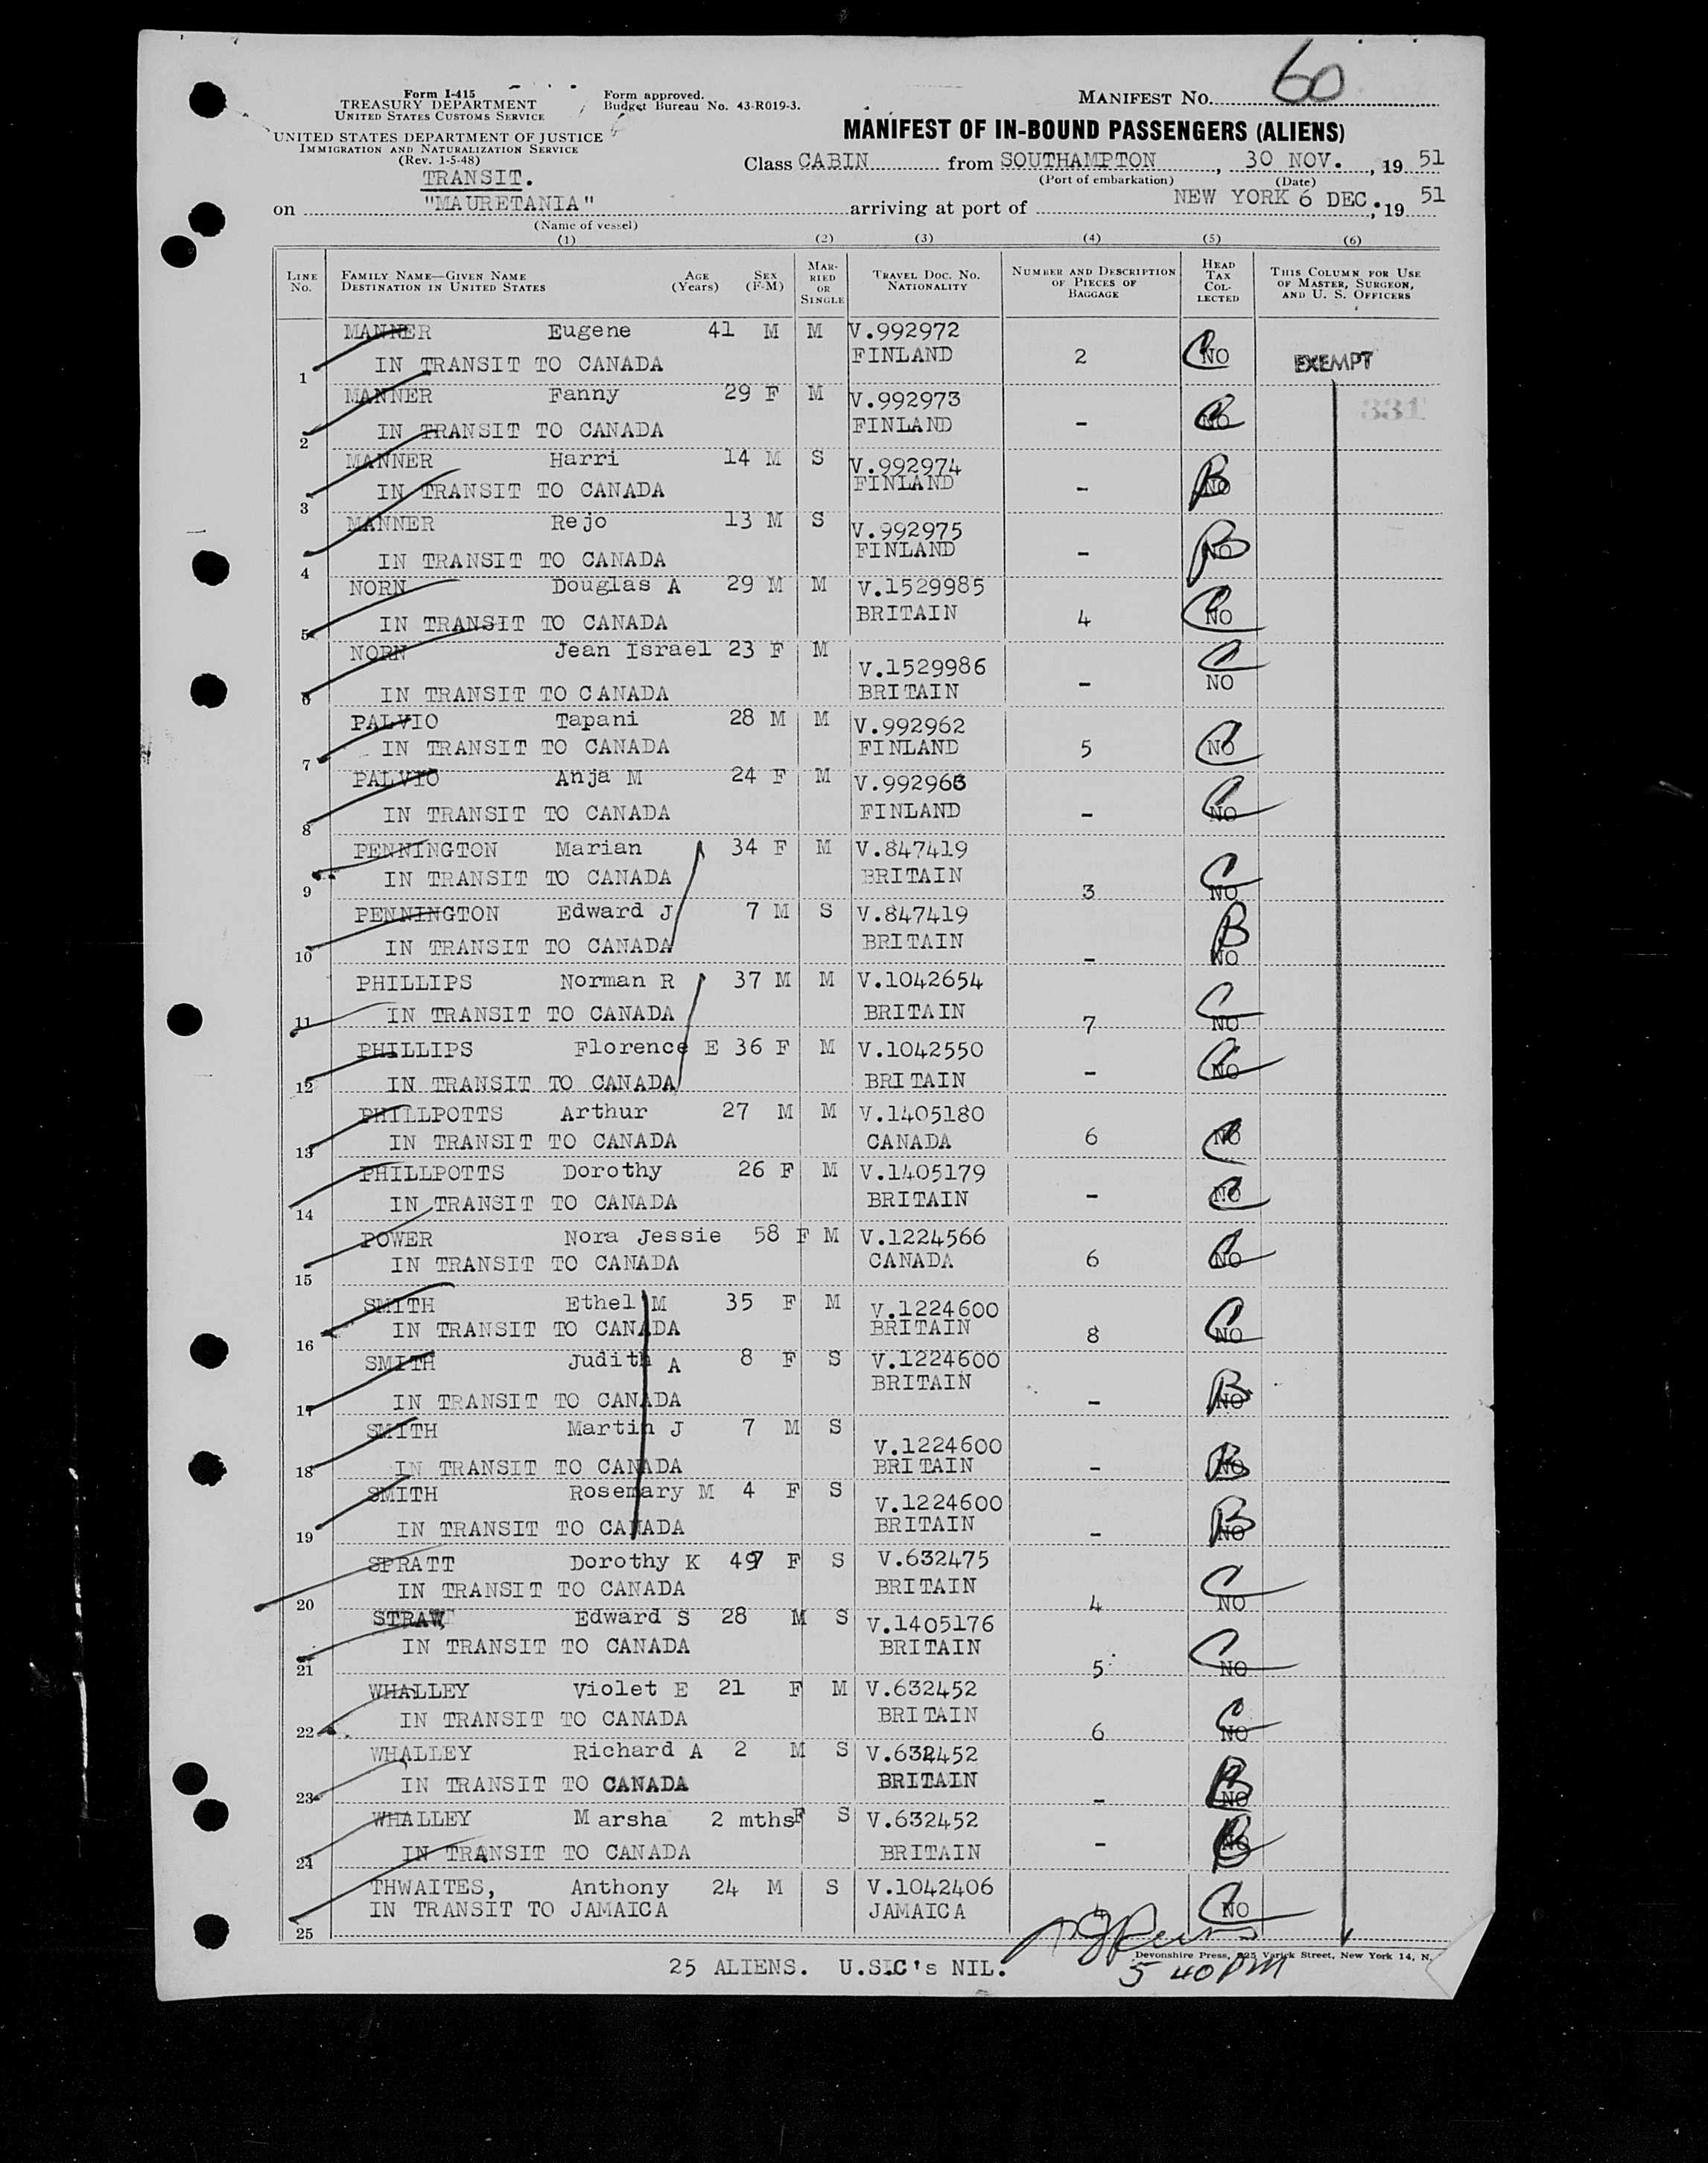 Form I-415
TREASURY DEPARTMENT
UNITED STATES CUSTOMS SERVICE
UNITED STATES DEPARTMENT OF JUSTICE
IMMIGRATION AND NATURALIZATION SERVICE
(Rev. 1-5-48)
TRANSIT.
Form approved.
Budget Bureau No. 43-R019-3.
MANIFEST NO. 60
MANIFEST OF IN-BOUND PASSENGERS (ALIENS)
Class CABIN from SOUTHAMPTON, 30 NOV., 19 51
(Port of embarkation) (Date)
on "MAURETANIA" arriving at port of NEW YORK 6 DEC., 19 51
(Name of vessel)
(1) (2) (3) (4) (5) (6)
LINE NO. FAMILY NAME—GIVEN NAME DESTINATION IN UNITED STATES AGE (Years) SEX (F-M) MARRIED OR SINGLE TRAVEL DOC. NO. NATIONALITY NUMBER AND DESCRIPTION OF PIECES OF BAGGAGE HEAD TAX COLLECTED THIS COLUMN FOR USE OF MASTER, SURGEON, AND U. S. OFFICERS
MANNER Eugene 41 M M V.992972
1 IN TRANSIT TO CANADA FINLAND 2 C NO EXEMPT
MANNER Fanny 29 F M V.992973 331
2 IN TRANSIT TO CANADA FINLAND - C NO
MANNER Harri 14 M S V.992974
3 IN TRANSIT TO CANADA FINLAND - B NO
MANNER Rejo 13 M S V.992975
4 IN TRANSIT TO CANADA FINLAND - B NO
NORN Douglas A 29 M M V.1529985
5 IN TRANSIT TO CANADA BRITAIN 4 C NO
NORN Jean Israel 23 F M V.1529986
6 IN TRANSIT TO CANADA BRITAIN - C NO
PALVIO Tapani 28 M M V.992962
7 IN TRANSIT TO CANADA FINLAND 5 C NO
PALVIO Anja M 24 F M V.992963
8 IN TRANSIT TO CANADA FINLAND - C NO
PENNINGTON Marian 34 F M V.847419
9 IN TRANSIT TO CANADA BRITAIN 3 C NO
PENNINGTON Edward J 7 M S V.847419
10 IN TRANSIT TO CANADA BRITAIN - B NO
PHILLIPS Norman R 37 M M V.1042654
11 IN TRANSIT TO CANADA BRITAIN 7 C NO
PHILLIPS Florence E 36 F M V.1042550
12 IN TRANSIT TO CANADA BRITAIN - C NO
PHILLPOTTS Arthur 27 M M V.1405180
13 IN TRANSIT TO CANADA CANADA 6 C NO
PHILLPOTTS Dorothy 26 F M V.1405179
14 IN TRANSIT TO CANADA BRITAIN - C NO
POWER Nora Jessie 58 F M V.1224566
15 IN TRANSIT TO CANADA CANADA 6 C NO
SMITH Ethel M 35 F M V.1224600
16 IN TRANSIT TO CANADA BRITAIN 8 C NO
SMITH Judith A 8 F S V.1224600
17 IN TRANSIT TO CANADA BRITAIN - B NO
SMITH Martin J 7 M S V.1224600
18 IN TRANSIT TO CANADA BRITAIN - B NO
SMITH Rosemary M 4 F S V.1224600
19 IN TRANSIT TO CANADA BRITAIN - B NO
SPRATT Dorothy K 49 F S V.632475
20 IN TRANSIT TO CANADA BRITAIN 4 C NO
STRAW Edward S 28 M S V.1405176
21 IN TRANSIT TO CANADA BRITAIN 5 C NO
WHALLEY Violet E 21 F M V.632452
22 IN TRANSIT TO CANADA BRITAIN 6 C NO
WHALLEY Richard A 2 M S V.632452
23 IN TRANSIT TO CANADA BRITAIN - B NO
WHALLEY Marsha 2 mths F S V.632452
24 IN TRANSIT TO CANADA BRITAIN - B NO
THWAITES, Anthony 24 M S V.1042406
25 IN TRANSIT TO JAMAICA JAMAICA 4 C NO
Devonshire Press, 225 Varick Street, New York 14, N.
25 ALIENS. U.S.C's NIL. 5 40 PM